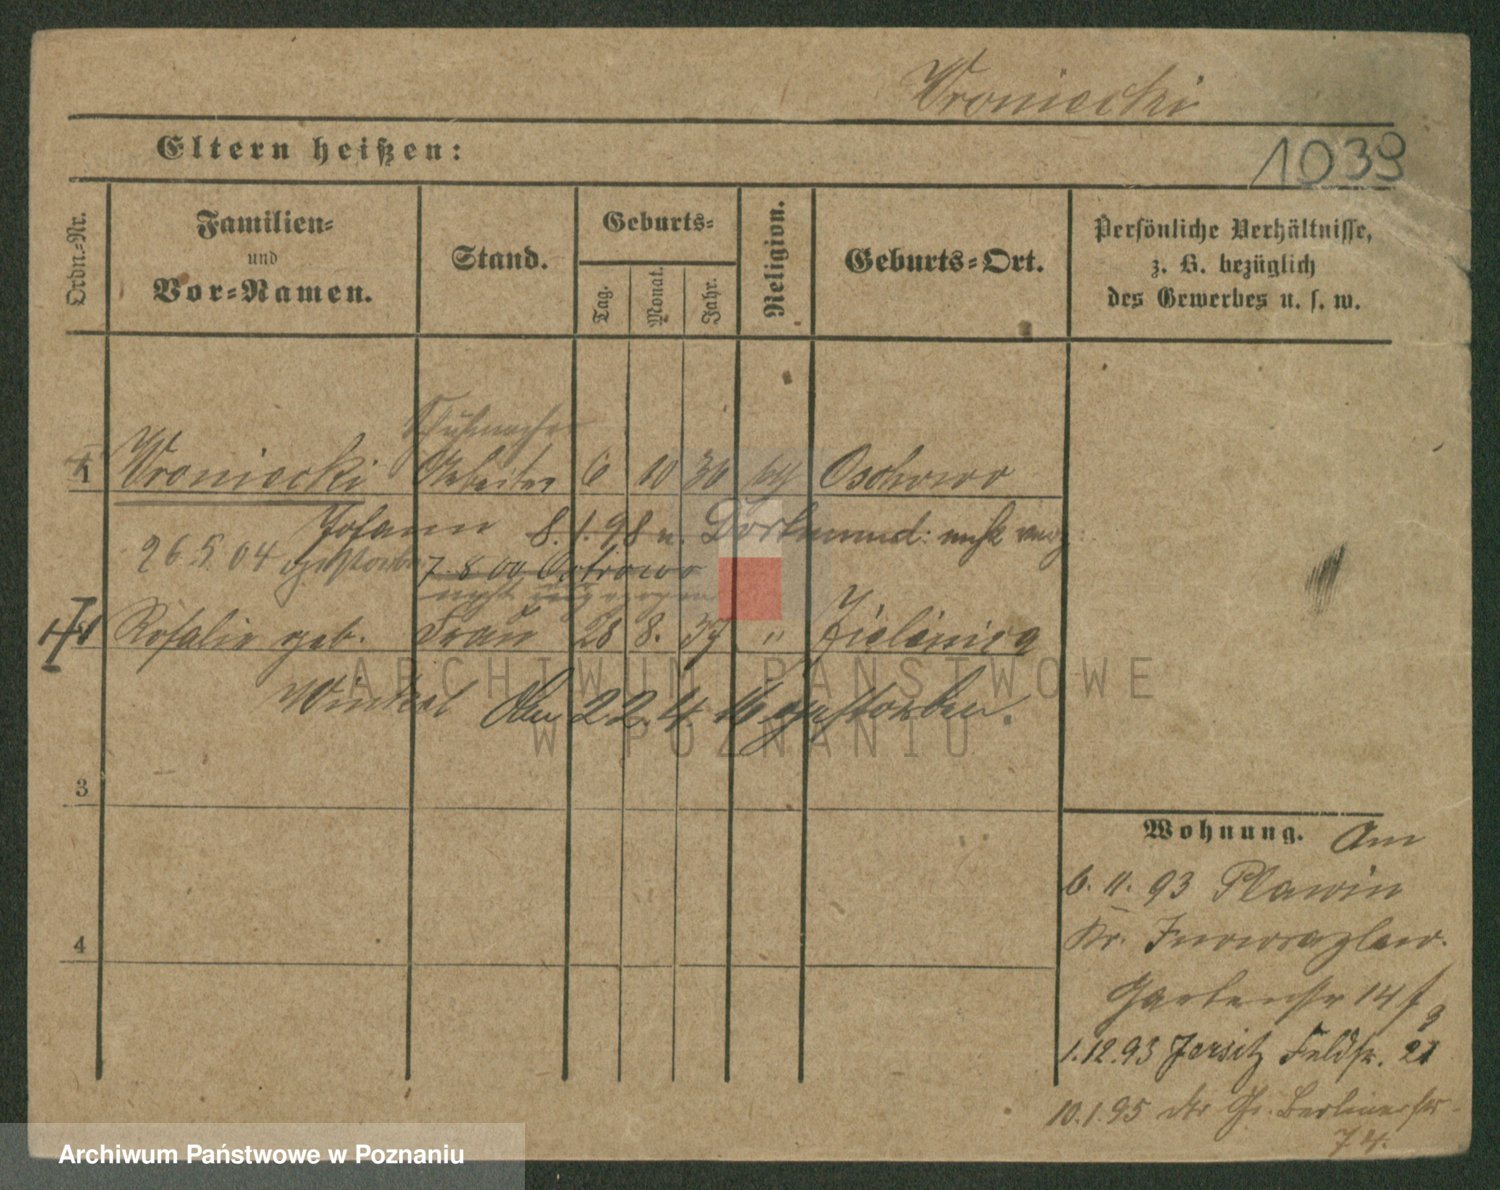 Wroniecki
Eltern heißen:
1039
Ordn.-Nr.
Familien-
und
Vor-Namen.
Stand.
Geburts-
Tag.
Monat.
Jahr.
Religion.
Geburts-Ort.
Persönliche Verhältnisse,
z. B. bezüglich
des Gewerbes u. s. w.
Schuhmacher
1 Wroniecki Arbeiter 6 10 30 Oschowo
Johann 8.1.98 n. Dortmund:
26.5.04 gestorben 7.8.00 Ostrowo
nicht
Rosalie geb. Frau 28 8. 37 " Zielinica
Winkel Den 22. 4. 16 gestorben.
3
4
Wohnung. Am
6. 11. 93 Plawin
Kr. Inowrazlaw.
Gartenstr 14
1.12.93 Jersitz Feldstr. 21
10.1.95 Gr. Berlinerstr
74.
ARCHIWUM PAŃSTWOWE
W POZNANIU
Archiwum Państwowe w Poznaniu